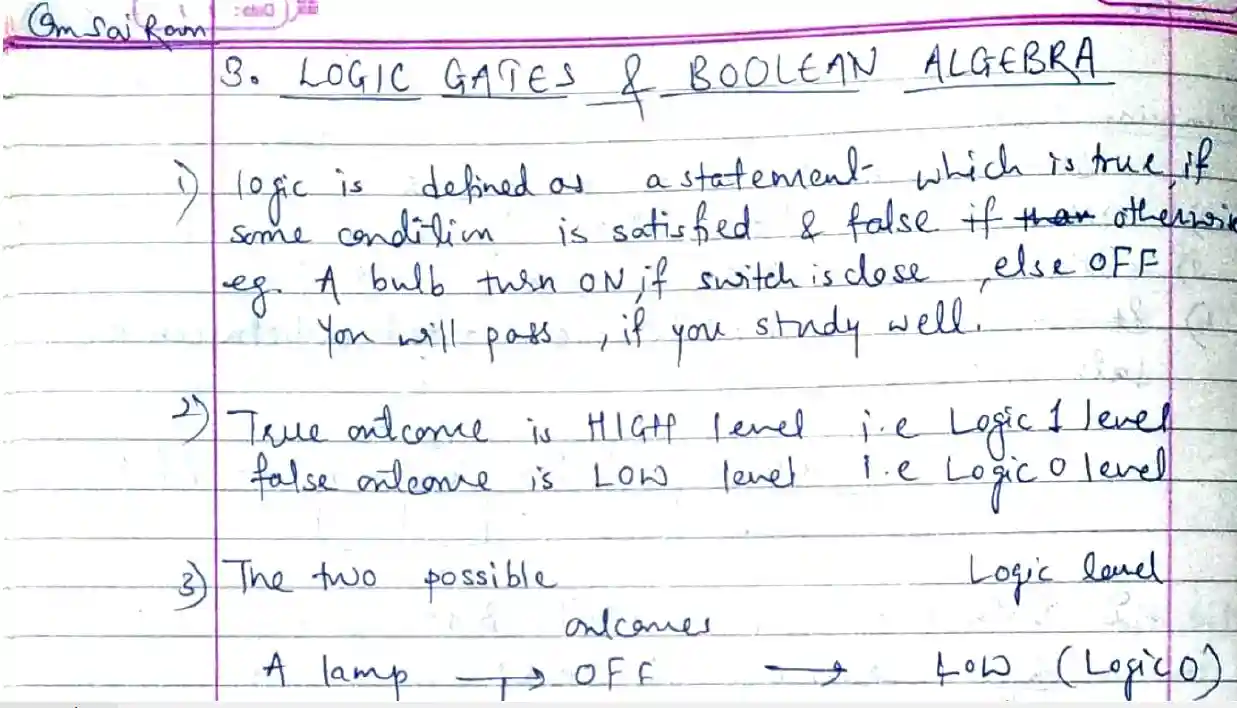 Om Sai Ram
3. LOGIC GATES & BOOLEAN ALGEBRA
1) logic is defined as a statement which is true, if
some condition is satisfied & false if than otherwis
eg. A bulb turn ON, if switch is close, else OFF
You will pass, if you study well.
2) True outcome is HIGH level i.e Logic 1 level
false outcome is LOW level i.e Logic 0 level
3) The two possible Logic level
outcomes
A lamp → OFF → LOW (Logic 0)